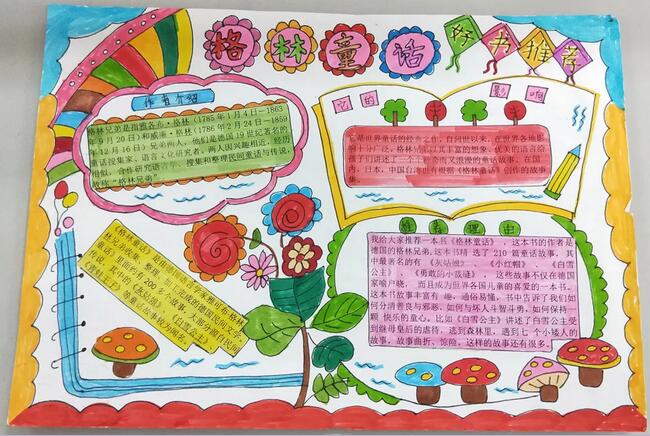 格林童话
好书推荐
作者介绍
格林兄弟是指雅各布·格林(1785年1月4日—1863
年9月20日)和威廉·格林(1786年2月24日—1859
年12月16日)兄弟两人,他们是德国19世纪著名的
童话搜集家、语言文化研究者。两人因兴趣相近,经历
相似,合作研究语言学、搜集和整理民间童话与传说,
故称“格林兄弟”。
它的影响
它是世界童话的经典之作,自问世以来,在世界各地影响
十分广泛。格林兄弟以其丰富的想象、优美的语言给
孩子们讲述了一个个神奇而又浪漫的童话故事。在国
内,日本,中国台湾出有根据《格林童话》创作的故事
集。
《格林童话》是由德国语言学家雅可布·格林
林兄弟收集、整理、加工完成的德国民间文学。
童话,里面约有200多个故事,大部分源自民间
传说,其中的《灰姑娘》、《白雪公主》、
《青蛙王子》等童话故事较为闻名。
推荐理由
我给大家推荐一本书《格林童话》,这本书的作者是
德国的格林兄弟,这本书精 选了 210 篇童话故事。其
中最著名的有 《灰姑娘》、 《小红帽》 、 《白雪
公主》、 《勇敢的小裁缝》 、 这些故事不仅在德国
家喻户晓, 而且成为世界各国儿童的喜爱的一本书。
这本书故事丰富有 趣,通俗易懂,书中告诉了我们如
何分清善良与邪恶,如何与坏人斗智斗勇,如何保持一
颗 快乐的童心。比如《白雪公主》讲述了白雪公主受
到继母皇后的虐待,逃到森林里,遇到七个小矮人的
故事,故事曲折、惊险,这样的故事还有很多。